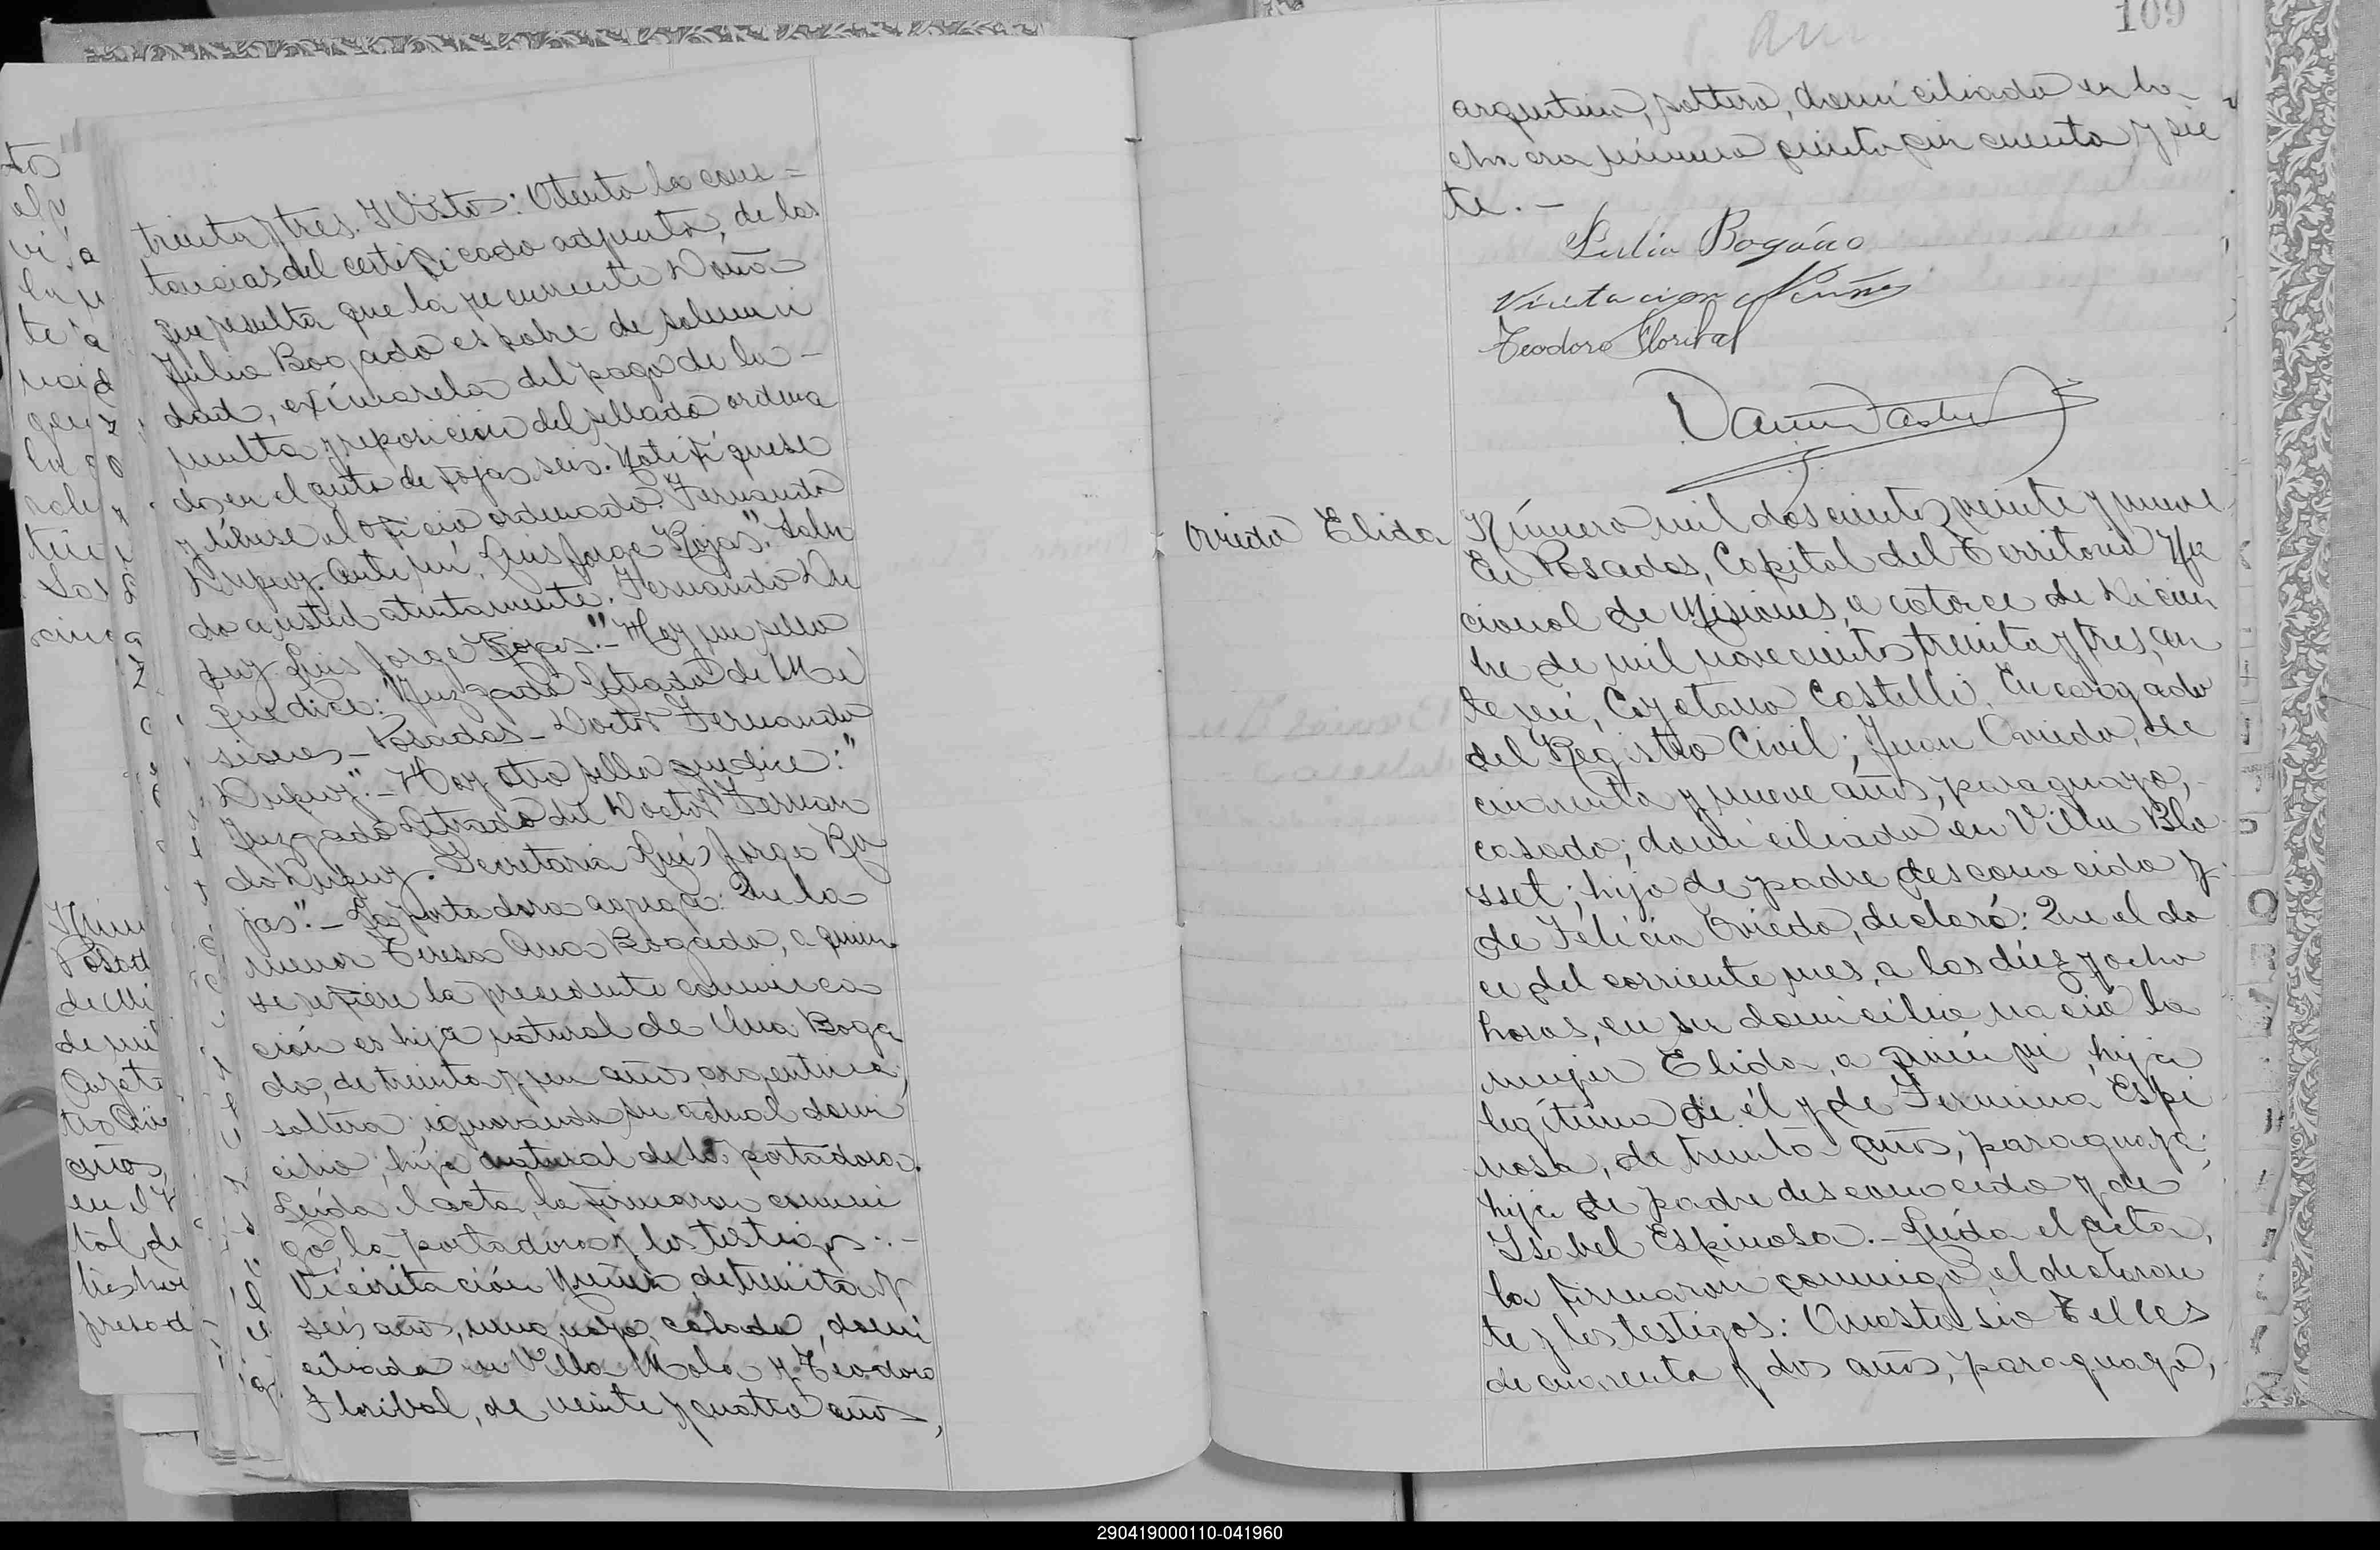 treinta y tres. Y Vistos: Atento las cons=
tancias del certificado adjunto, de las
que resulta que la recurrente Doña
Julia Bogado es pobre de solemni
dad, exímasela del pago de la
multa y reposición del sellado ordena
do en el auto de fojas seis. Notifíquese
y líbrese el oficio ordenado. Fernando
Dupuy. Ante mí, Luis Jorge Rojas". Salu
do a usted atentamente. Fernando Du
puy. Luis Jorge Rojas."- Hay un sello
que dice: "Juzgado Letrado de Mi
siones - Posadas - Doctor Fernando
Dupuy".- Hay otro sello que dice: "
Juzgado Letrado del Doctor Fernan
do Dupuy. Secretaria Luis Jorge Ro
jas".- La portadora agrega: Que la
menor Teresa Ana Bogado, a quien
se refiere la precedente comunica
ción es hija natural de Ana Boga
do, de treinta y un años, argentina,
soltera, ignorando su actual domi
cilio; hija natural de la portadora.
Leída el acta, la firmaron conmi
go, la portadora y los testigos:-
Vicitación Nuñez, de treinta y
seis años, uruguayo, casado, domi
ciliado en Villa Mola y Teodoro
Floribal, de veinte y cuatro años,
109
argentino, soltero, domiciliado en la
chacra número ciento cincuenta y sie
te.-
Julia Bogado
Vicitacion Nuñez
Teodoro Florival
Oviedo Elida
Número mil doscientos veinte y nueve
En Posadas, Capital del Territorio Na
cional de Misiones, a catorce de Diciem
bre de mil novecientos treinta y tres, an
te mí, Cayetano Castelli, Encargado
del Registro Civil; Juan Oviedo, de
cincuenta y nueve años, paraguayo,
casado; domiciliado en Villa Blo
sset; hijo de padre desconocido y
de Felicia Oviedo, declaró: Que el do
ce del corriente mes, a las diez y ocho
horas, en su domicilio nació la
mujer Elida, a quien vi, hija
legítima de él y de Fermina Espi
nosa, de treinta años, paraguaya;
hija de padre desconocido y de
Isabel Espinosa.- Leída el acta,
la firmaron conmigo, el declaran
te y los testigos: Anastasio Telles
de cincuenta y dos años, paraguayo,
290419000110-041960